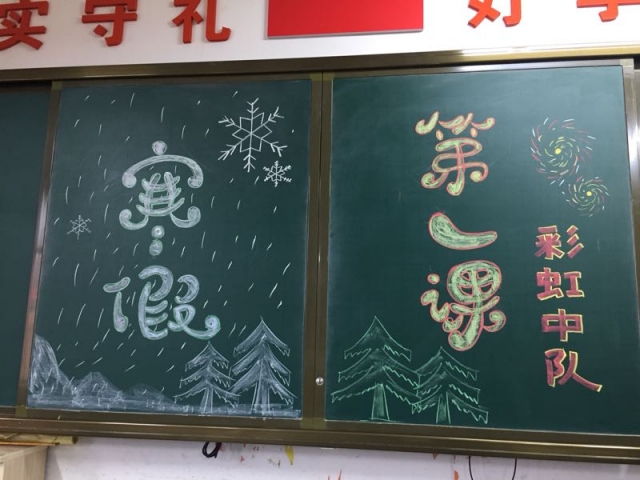 实守礼
好学
寒假
第一课
彩虹中队